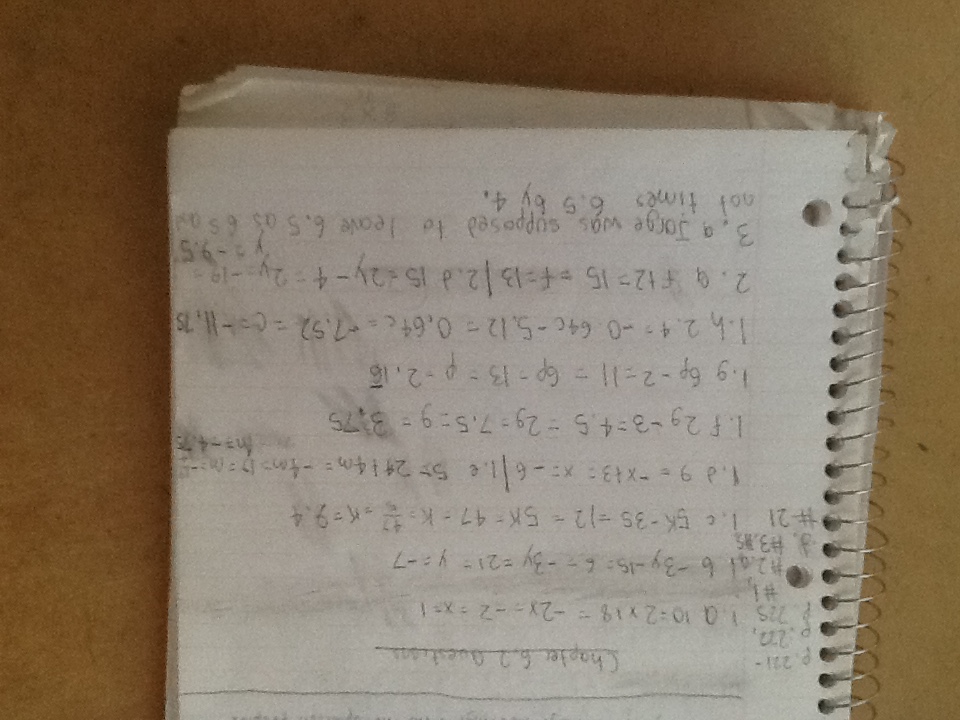 Chapter 6.2 Questions
p.221-
p.222,
p 225 1.a 10=2x+8 = -2x=-2 = x=1
#1,
#2.ad 6 -3y-15=6 = -3y=21= y=-7
d, #3.
#21 1.c 5K-35=12 = 5K=47=K=47/5=K=9.4
1.d 9=-x+3= x=-6|1.e 5= 24+4m= -4m=19=m=
m=-4.75
1.f 2g-3=4.5 =2g=7.5=g= 3.75
1.g 6p-2=11 = 6p=13= p=2.16
1.h 2.4=-0.64c-5.12= 0.64c=-7.52 =c=-11.75
2. a f+2=15 =f=13|2.d 15=2y-4=2y=-19=
y=-9.5
3.a Jorge was supposed to leave 6.5 as 6.5 and
not times 6.5 by 4.